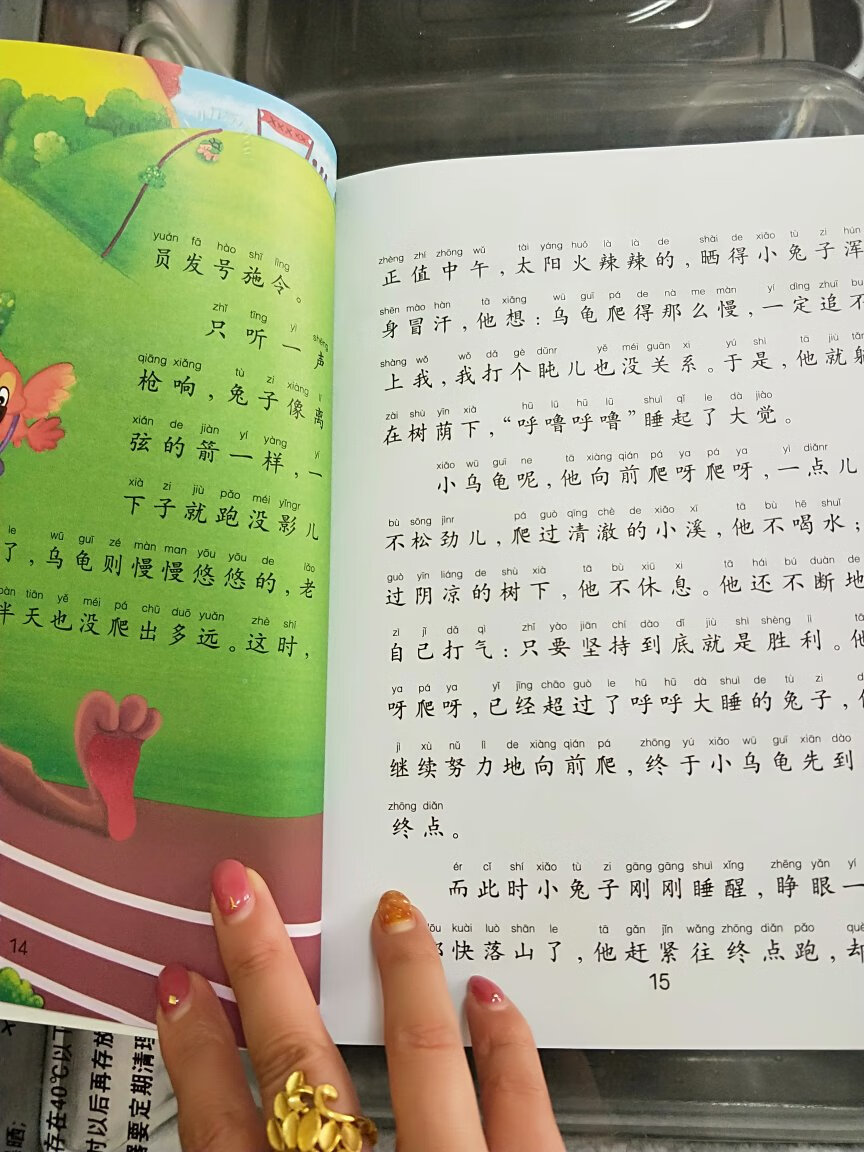 yuán fā hào shī lìng
员发号施令。
zhǐ tīng yì shēng
只听一声
qiāng xiǎng tù zi xiàng lí
枪响，兔子像离
xián de jiàn yí yàng yí
弦的箭一样，一
xià zi jiù pǎo méi yǐngr
下子就跑没影儿
le wū guī zé màn man yōu yōu de lǎo
了，乌龟则慢慢悠悠的，老
bàn tiān yě méi pá chū duō yuǎn zhè shí
半天也没爬出多远。这时，
14
zhèng zhí zhōng wǔ tài yáng huǒ là là de shài de xiǎo tù zi hún
正值中午，太阳火辣辣的，晒得小兔子浑
shēn mào hàn tā xiǎng wū guī pá de nà me màn yí dìng zhuī bu
身冒汗，他想：乌龟爬得那么慢，一定追不
shàng wǒ wǒ dǎ gè dǔnr yě méi guān xi yú shì tā jiù tǎng
上我，我打个盹儿也没关系。于是，他就躺
zài shù yīn xià hū lū hū lū shuì qǐ le dà jiào
在树荫下，“呼噜呼噜”睡起了大觉。
xiǎo wū guī ne tā xiàng qián pá ya pá ya yì diǎnr
小乌龟呢，他向前爬呀爬呀，一点儿
bù sōng jìnr pá guò qīng chè de xiǎo xī tā bù hē shuǐ
不松劲儿，爬过清澈的小溪，他不喝水；
guò yīn liáng de shù xià tā bù xiū xi tā hái bú duàn de
过阴凉的树下，他不休息。他还不断地
zì jǐ dǎ qì zhǐ yào jiān chí dào dǐ jiù shì shèng lì tā
自己打气：只要坚持到底就是胜利。他
ya pá ya yǐ jīng chāo guò le hū hū dà shuì de tù zi
呀爬呀，已经超过了呼呼大睡的兔子，
jì xù nǔ lì de xiàng qián pá zhōng yú xiǎo wū guī xiān dào
继续努力地向前爬，终于小乌龟先到
zhōng diǎn
终点。
ér cǐ shí xiǎo tù zi gāng gāng shuì xǐng zhēng yǎn yí
而此时小兔子刚刚睡醒，睁眼一
dōu kuài luò shān le tā gǎn jǐn wǎng zhōng diǎn pǎo què
都快落山了，他赶紧往终点跑，却
15
存在40℃以下
时以后再存放
器要定期清理